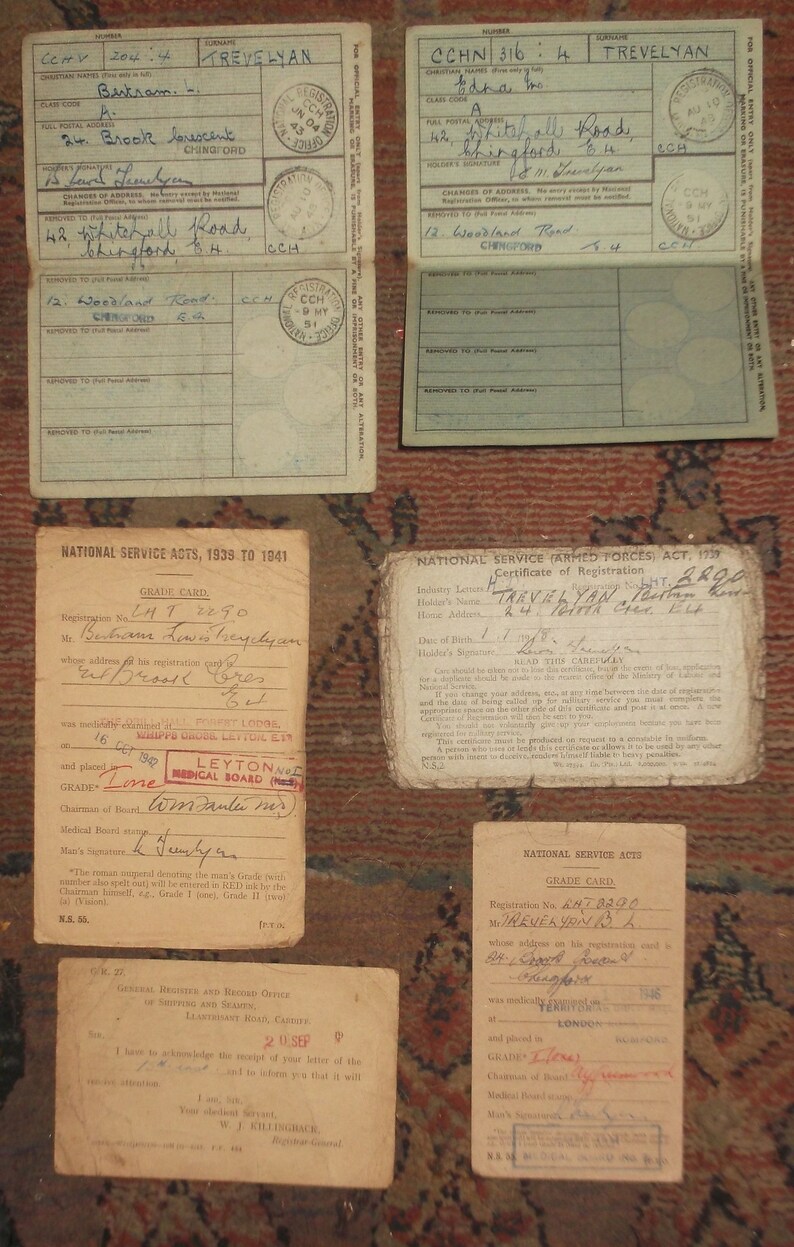 NUMBER SURNAME
CCHV 204 : 4 TREVELYAN
CHRISTIAN NAMES (First only in full)
Bertram. L.
CLASS CODE
A.
FULL POSTAL ADDRESS
24. Brook Crescent
CHINGFORD
HOLDER'S SIGNATURE
B Lewis Trevelyan
CHANGES OF ADDRESS. No entry except by National
Registration Officer, to whom removal must be notified.
REMOVED TO (Full Postal Address)
42, Whitehall Road,
Chingford E.4 CCH
REMOVED TO (Full Postal Address)
12. Woodland Road. CCH
CHINGFORD E.4
REMOVED TO (Full Postal Address)
REMOVED TO (Full Postal Address)
REMOVED TO (Full Postal Address)
NATIONAL REGISTRATION OFFICE
CCH
JN 04
43
NATIONAL REGISTRATION OFFICE
CCH
9 MY
51
FOR OFFICIAL ENTRY ONLY (apart from Holder's Signature). ANY OTHER ENTRY OR ANY ALTERATION,
MARKING OR ERASURE, IS PUNISHABLE BY A FINE OR IMPRISONMENT OR BOTH.
NUMBER SURNAME
CCHN 316 : 4 TREVELYAN
CHRISTIAN NAMES (First only in full)
Edna M.
CLASS CODE
A
FULL POSTAL ADDRESS
42, Whitehall Road,
Chingford E.4 CCH
HOLDER'S SIGNATURE
E M Trevelyan
CHANGES OF ADDRESS. No entry except by National
Registration Officer, to whom removal must be notified.
REMOVED TO (Full Postal Address)
12. Woodland Road.
CHINGFORD E.4 CCH
REMOVED TO (Full Postal Address)
REMOVED TO (Full Postal Address)
REMOVED TO (Full Postal Address)
REMOVED TO (Full Postal Address)
REGISTRATION
AU 10
CCH
9 MY
51
FOR OFFICIAL ENTRY ONLY (apart from Holder's Signature). ANY OTHER ENTRY OR ANY ALTERATION,
MARKING OR ERASURE, IS PUNISHABLE BY A FINE OR IMPRISONMENT OR BOTH.
NATIONAL SERVICE ACTS, 1939 TO 1941
GRADE CARD.
Registration No. LHT 2290
Mr. Bertram Lewis Trevelyan
whose address on his registration card is
24 Brook Cres
E4
was medically examined at
FOREST LODGE,
WHIPPS CROSS, LEYTON, E.11
on 16 OCT 1942
and placed in
GRADE* I one
LEYTON No I
MEDICAL BOARD
Chairman of Board
Medical Board stamp
Man's Signature L Trevelyan
*The roman numeral denoting the man's Grade (with
number also spelt out) will be entered in RED ink by the
Chairman himself, e.g., Grade I (one), Grade II (two)
(a) (Vision).
N.S. 55. [P.T.O.
NATIONAL SERVICE (ARMED FORCES) ACT, 1939
Certificate of Registration
Industry Letters Registration No. LHT. 2290
Holder's Name TREVELYAN Bertram Lewis
Home Address 24 Brook Cres. E4
Date of Birth 1 1
Holder's Signature Lewis Trevelyan
READ THIS CAREFULLY
Care should be taken not to lose this certificate, but in the event of loss, application
for a duplicate should be made to the nearest office of the Ministry of Labour and
National Service.
If you change your address, etc., at any time between the date of registration
and the date of being called up for military service you must complete the
appropriate space on the other side of this certificate and post it at once. A new
Certificate of Registration will then be sent to you.
You should not voluntarily give up your employment because you have been
registered for military service.
This certificate must be produced on request to a constable in uniform.
A person who uses or lends this certificate or allows it to be used by any other
person with intent to deceive, renders himself liable to heavy penalties.
N.S.2.
NATIONAL SERVICE ACTS
GRADE CARD.
Registration No. LHT 2290
Mr TREVELYAN B L
whose address on his registration card is
24. Brook Crescent
Chingford
was medically examined on 1946
TERRITORIAL
at LONDON
and placed in ROMFORD
GRADE* I (one)
Chairman of Board
Medical Board stamp
Man's Signature
N.S. 55. MEDICAL BOARD
G.R. 27.
GENERAL REGISTER AND RECORD OFFICE
OF SHIPPING AND SEAMEN,
LLANTRISANT ROAD, CARDIFF.
20 SEP
SIR,
I have to acknowledge the receipt of your letter of the
and to inform you that it will
receive attention.
I am, Sir,
Your obedient Servant,
W. J. KILLINGBACK,
Registrar-General.